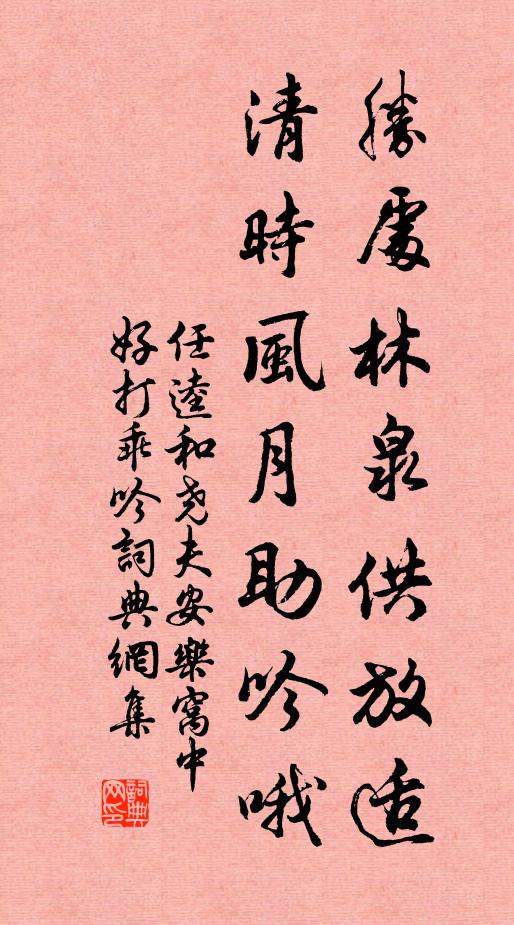 勝處林泉供放适
清時風月助吟哦
任逵和堯夫安樂窩中
好打乖吟詞典網集
詞典網印